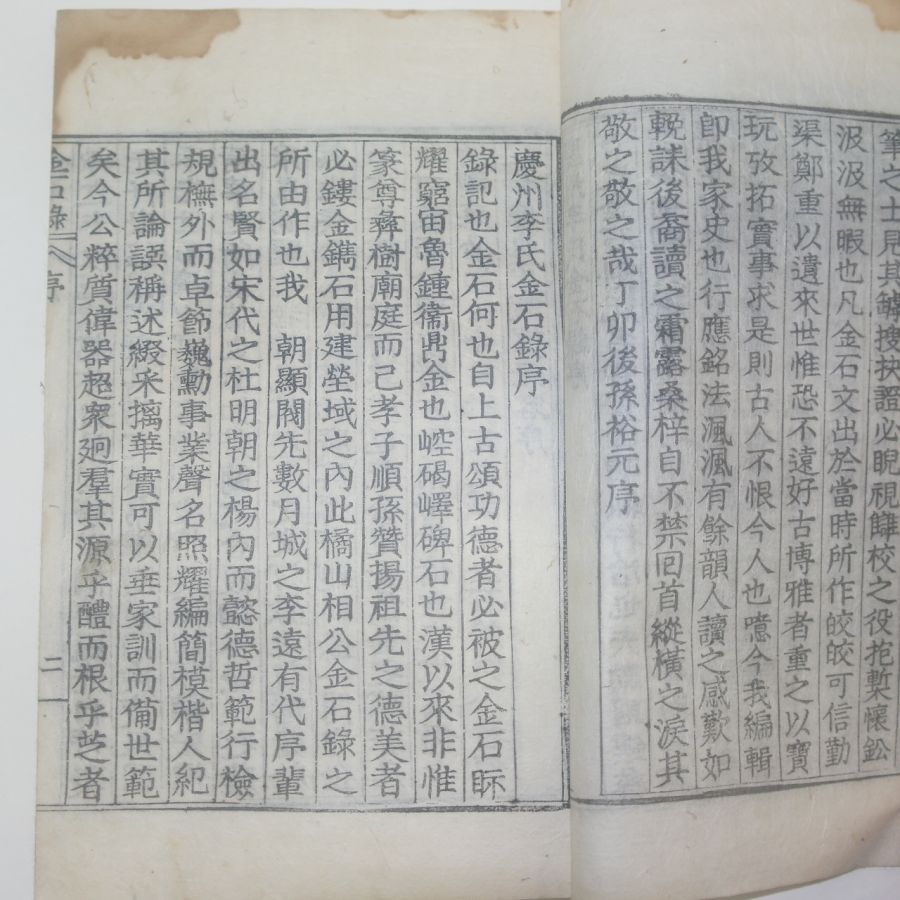 筆之士見其罅搜抉證必睨視雠校之役抱槧懷鈆
汲汲無暇也凡金石文出於當時所作皎皎可信勤
渠鄭重以遺來世惟恐不遠好古博雅者重之以寶
玩攷拓實事求是則古人不恨今人也噫今我編輯
卽我家史也行應銘法渢渢有餘韻人讀之感歎如
輓誄後裔讀之霜露桑梓自不禁回首縱橫之淚其
敬之敬之哉丁卯後孫裕元序
慶州李氏金石錄序
錄記也金石何也自上古頌功德者必被之金石眎
耀窮宙魯鍾衛鼎金也崆碣嶧碑石也漢以來非惟
篆尊彝樹廟庭而已孝子順孫贊揚祖先之德美者
必鏤金鐫石用建塋域之內此橘山相公金石錄之
所由作也我 朝顯閥先數月城之李遠有代序輩
出名賢如宋代之杜明朝之楊內而懿德哲範行檢
規橅外而卓節巍勳事業聲名照耀編簡模楷人紀
其所論譔稱述綴采摛華實可以垂家訓而備世範
矣今公粹質偉器超衆迥羣其源乎醴而根乎芝者
金石錄 序 二